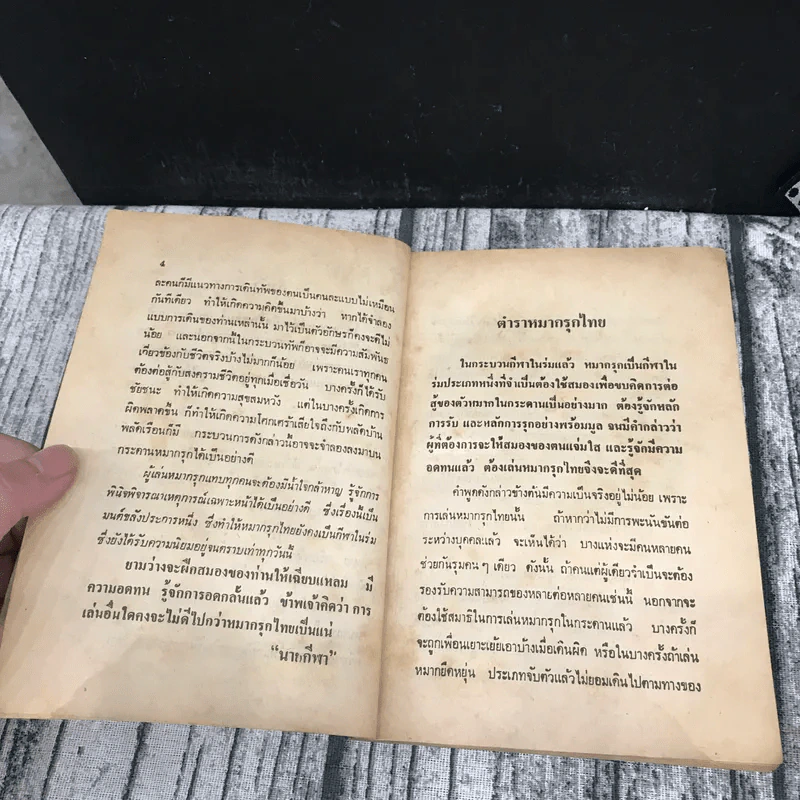 ๔
ละคนก็มีแนวทางการเดินทัพของตนเป็นคนละแบบไม่เหมือน
กันทีเดียว ทำให้เกิดความคิดขึ้นมาบ้างว่า หากได้จำลอง
แบบการเดินของท่านเหล่านั้น มาไว้เป็นตัวอักษรก็คงจะดีไม่
น้อย และนอกจากนี้ในกระบวนทัพก็อาจจะมีความสัมพันธ
เกี่ยวข้องกับชีวิตจริงบ้างไม่มากก็น้อย เพราะคนเราทุกคน
ต้องต่อสู้กับสงครามชีวิตอยู่ทุกเมื่อเชื่อวัน บางครั้งก็ได้รับ
ชัยชนะ ทำให้เกิดความสุขสมหวัง แต่ในบางครั้งเกิดการ
ผิดพลาดขึ้น ก็ทำให้เกิดความโศกเศร้าเสียใจถึงกับพลัดบ้าน
พลัดเรือนก็มี กระบวนการดังกล่าวนี้อาจจะจำลองลงมาบน
กระดานหมากรุกได้เป็นอย่างดี
ผู้เล่นหมากรุกแทบทุกคนจะต้องมีน้ำใจกล้าหาญ รู้จักการ
พินิจพิจารณาเหตุการณ์เฉพาะหน้าได้เป็นอย่างดี ซึ่งเรื่องนี้เป็น
มนต์ขลังประการหนึ่ง ซึ่งทำให้หมากรุกไทยยังคงเป็นกีฬาในร่ม
ซึ่งยังได้รับความนิยมอยู่จนตราบเท่าทุกวันนี้
ยามว่างจะฝึกสมองของท่านให้เฉียบแหลม มี
ความอดทน รู้จักการอดกลั้นแล้ว ข้าพเจ้าคิดว่า การ
เล่นอื่นใดคงจะไม่ดีไปกว่าหมากรุกไทยเป็นแน่
“นายกีฬา”
ตำราหมากรุกไทย
ในกระบวนกีฬาในร่มแล้ว หมากรุกเป็นกีฬาใน
ร่มประเภทหนึ่งที่จำเป็นต้องใช้สมองเพื่อขบคิดการต่อ
สู้ของตัวหมากในกระดานเป็นอย่างมาก ต้องรู้จักหลัก
การรับ และหลักการรุกอย่างพร้อมมูล จนมีคำกล่าวว่า
ผู้ที่ต้องการจะให้สมองของตนแจ่มใส และรู้จักมีความ
อดทนแล้ว ต้องเล่นหมากรุกไทยจึงจะดีที่สุด
คำพูดดังกล่าวข้างต้นมีความเป็นจริงอยู่ไม่น้อย เพราะ
การเล่นหมากรุกไทยนั้น ถ้าหากว่าไม่มีการพะนันขันต่อ
ระหว่างบุคคละแล้ว จะเห็นได้ว่า บางแห่งจะมีคนหลายคน
ช่วยกันรุมคน ๆ เดียว ดังนั้น ถ้าคนแต่ผู้เดียวจำเป็นจะต้อง
รองรับความสามารถของหลายต่อหลายคนเช่นนี้ นอกจากจะ
ต้องใช้สมาธิในการเล่นหมากรุกในกระดานแล้ว บางครั้งก็
จะถูกเพื่อนเยาะเย้ยเอาบ้างเมื่อเดินผิด หรือในบางครั้งถ้าเล่น
หมากยืดหยุ่น ประเภทจับตัวแล้วไม่ยอมเดินไปตามทางของ